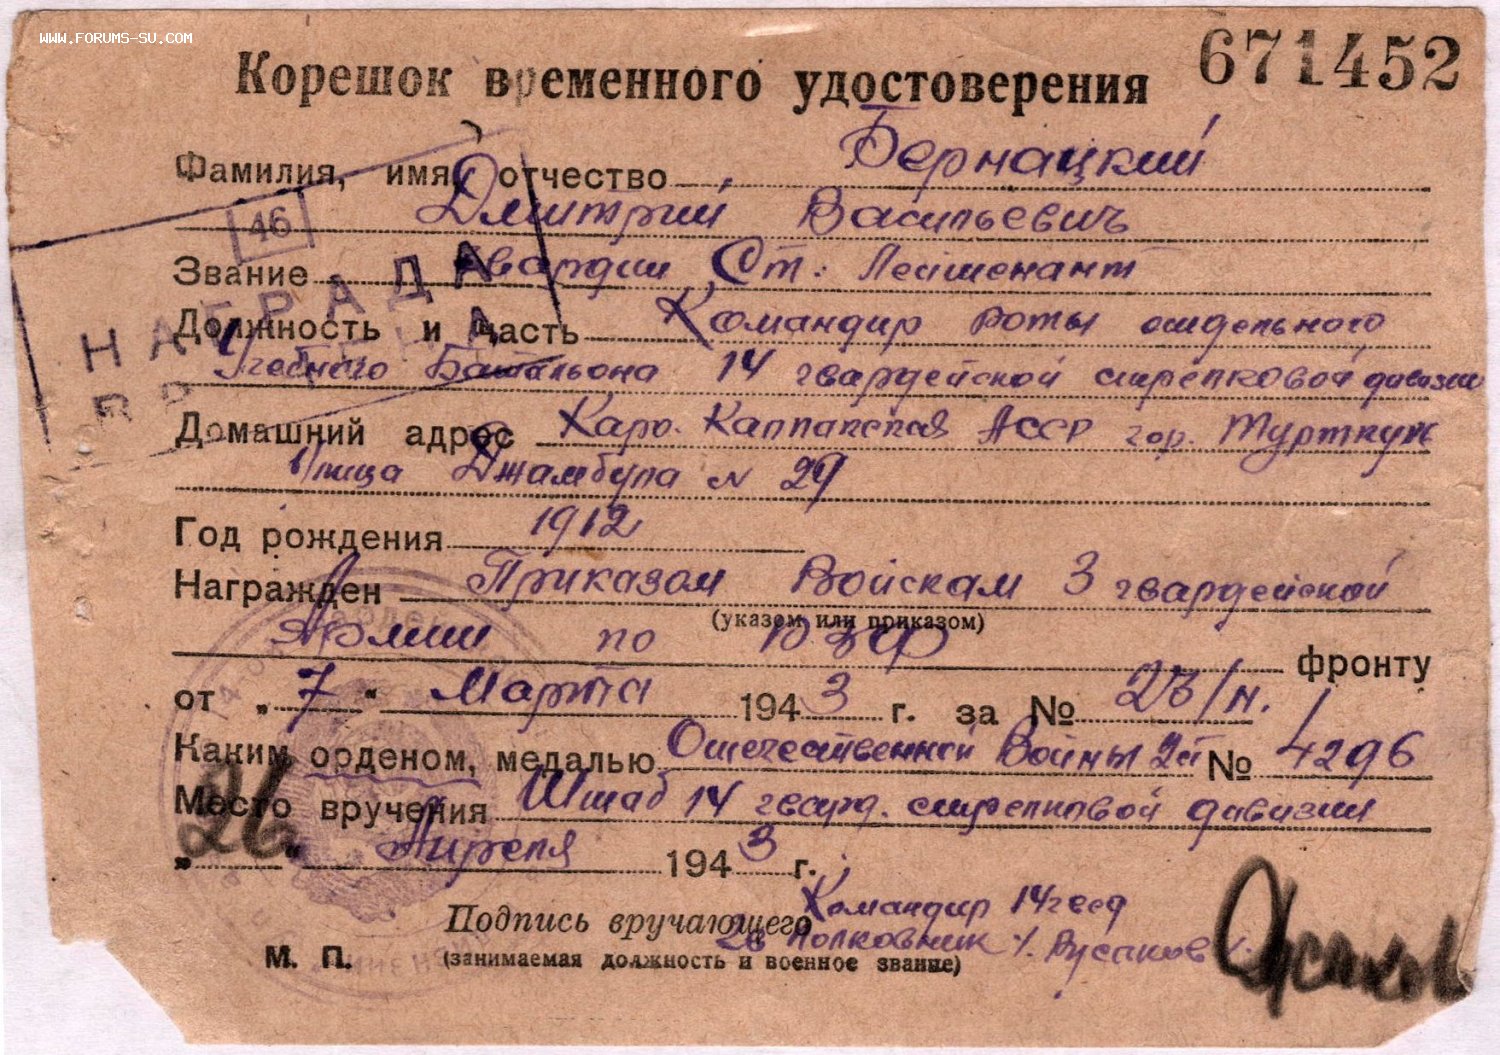 WWW.FORUMS-SU.COM
671452
Корешок временного удостоверения
Фамилия, имя, отчество Бернацкий
Дмитрий Васильевич
46
Звание Гвардии Ст. Лейтенант
НАГРАДА
Должность и часть Командир роты отдельного
Учебного Батальона 14 гвардейской стрелковой дивизии
Домашний адрес Каро. Каппакская АССР гор. Турткуль
улица Джамбула N 29
Год рождения 1912
Награжден Приказом Войскам 3 гвардейской
(указом или приказом)
Армии по ЮЗФ фронту
от „7" Марта 1943 г. за № 23/н.
Каким орденом, медалью Отечественной Войны 2 ст № 4296
Место вручения Штаб 14 гвард. стрелковой дивизии
„26" Апреля 1943 г.
Подпись вручающего Командир 14 гвсд
М. П. (занимаемая должность и военное звание)
гв Полковник /. Русаков /.
Русаков